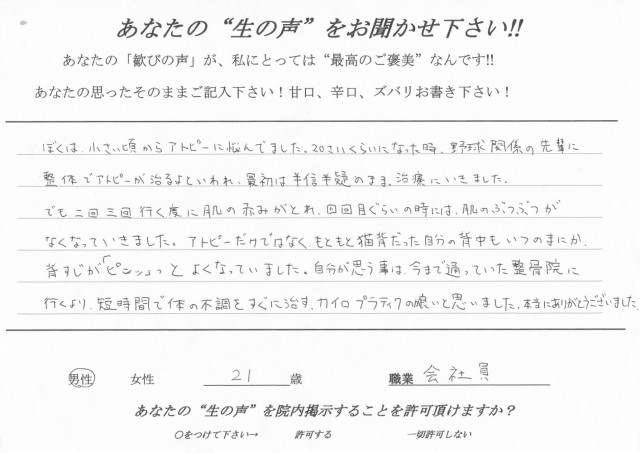 あなたの“生の声”をお聞かせ下さい!!
あなたの「歓びの声」が、私にとっては“最高のご褒美”なんです!!
あなたの思ったそのままご記入下さい！甘口、辛口、ズバリお書き下さい！
ぼくは、小さい頃からアトピーに悩んでました。20さいくらいになった時、野球関係の先輩に
整体でアトピーが治るよといわれ、最初は半信半疑のまま、治療にいきました。
でも二回三回行く度に肌の赤みがとれ、四回目ぐらいの時には、肌のぶつぶつが
なくなっていきました。アトピーだけではなく、もともと猫背だった自分の背中もいつのまにか、
背すじが「ピンッ」っと よくなっていました。自分が思う事は、今まで通っていた整骨院に
行くより、短時間で体の不調をすぐに治す、カイロプラティクの娘いと思いました。本当にありがとうございました。
男性 女性 21 歳 職業 会社員
あなたの“生の声”を院内掲示することを許可頂けますか？
○をつけて下さい→ 許可する 一切許可しない